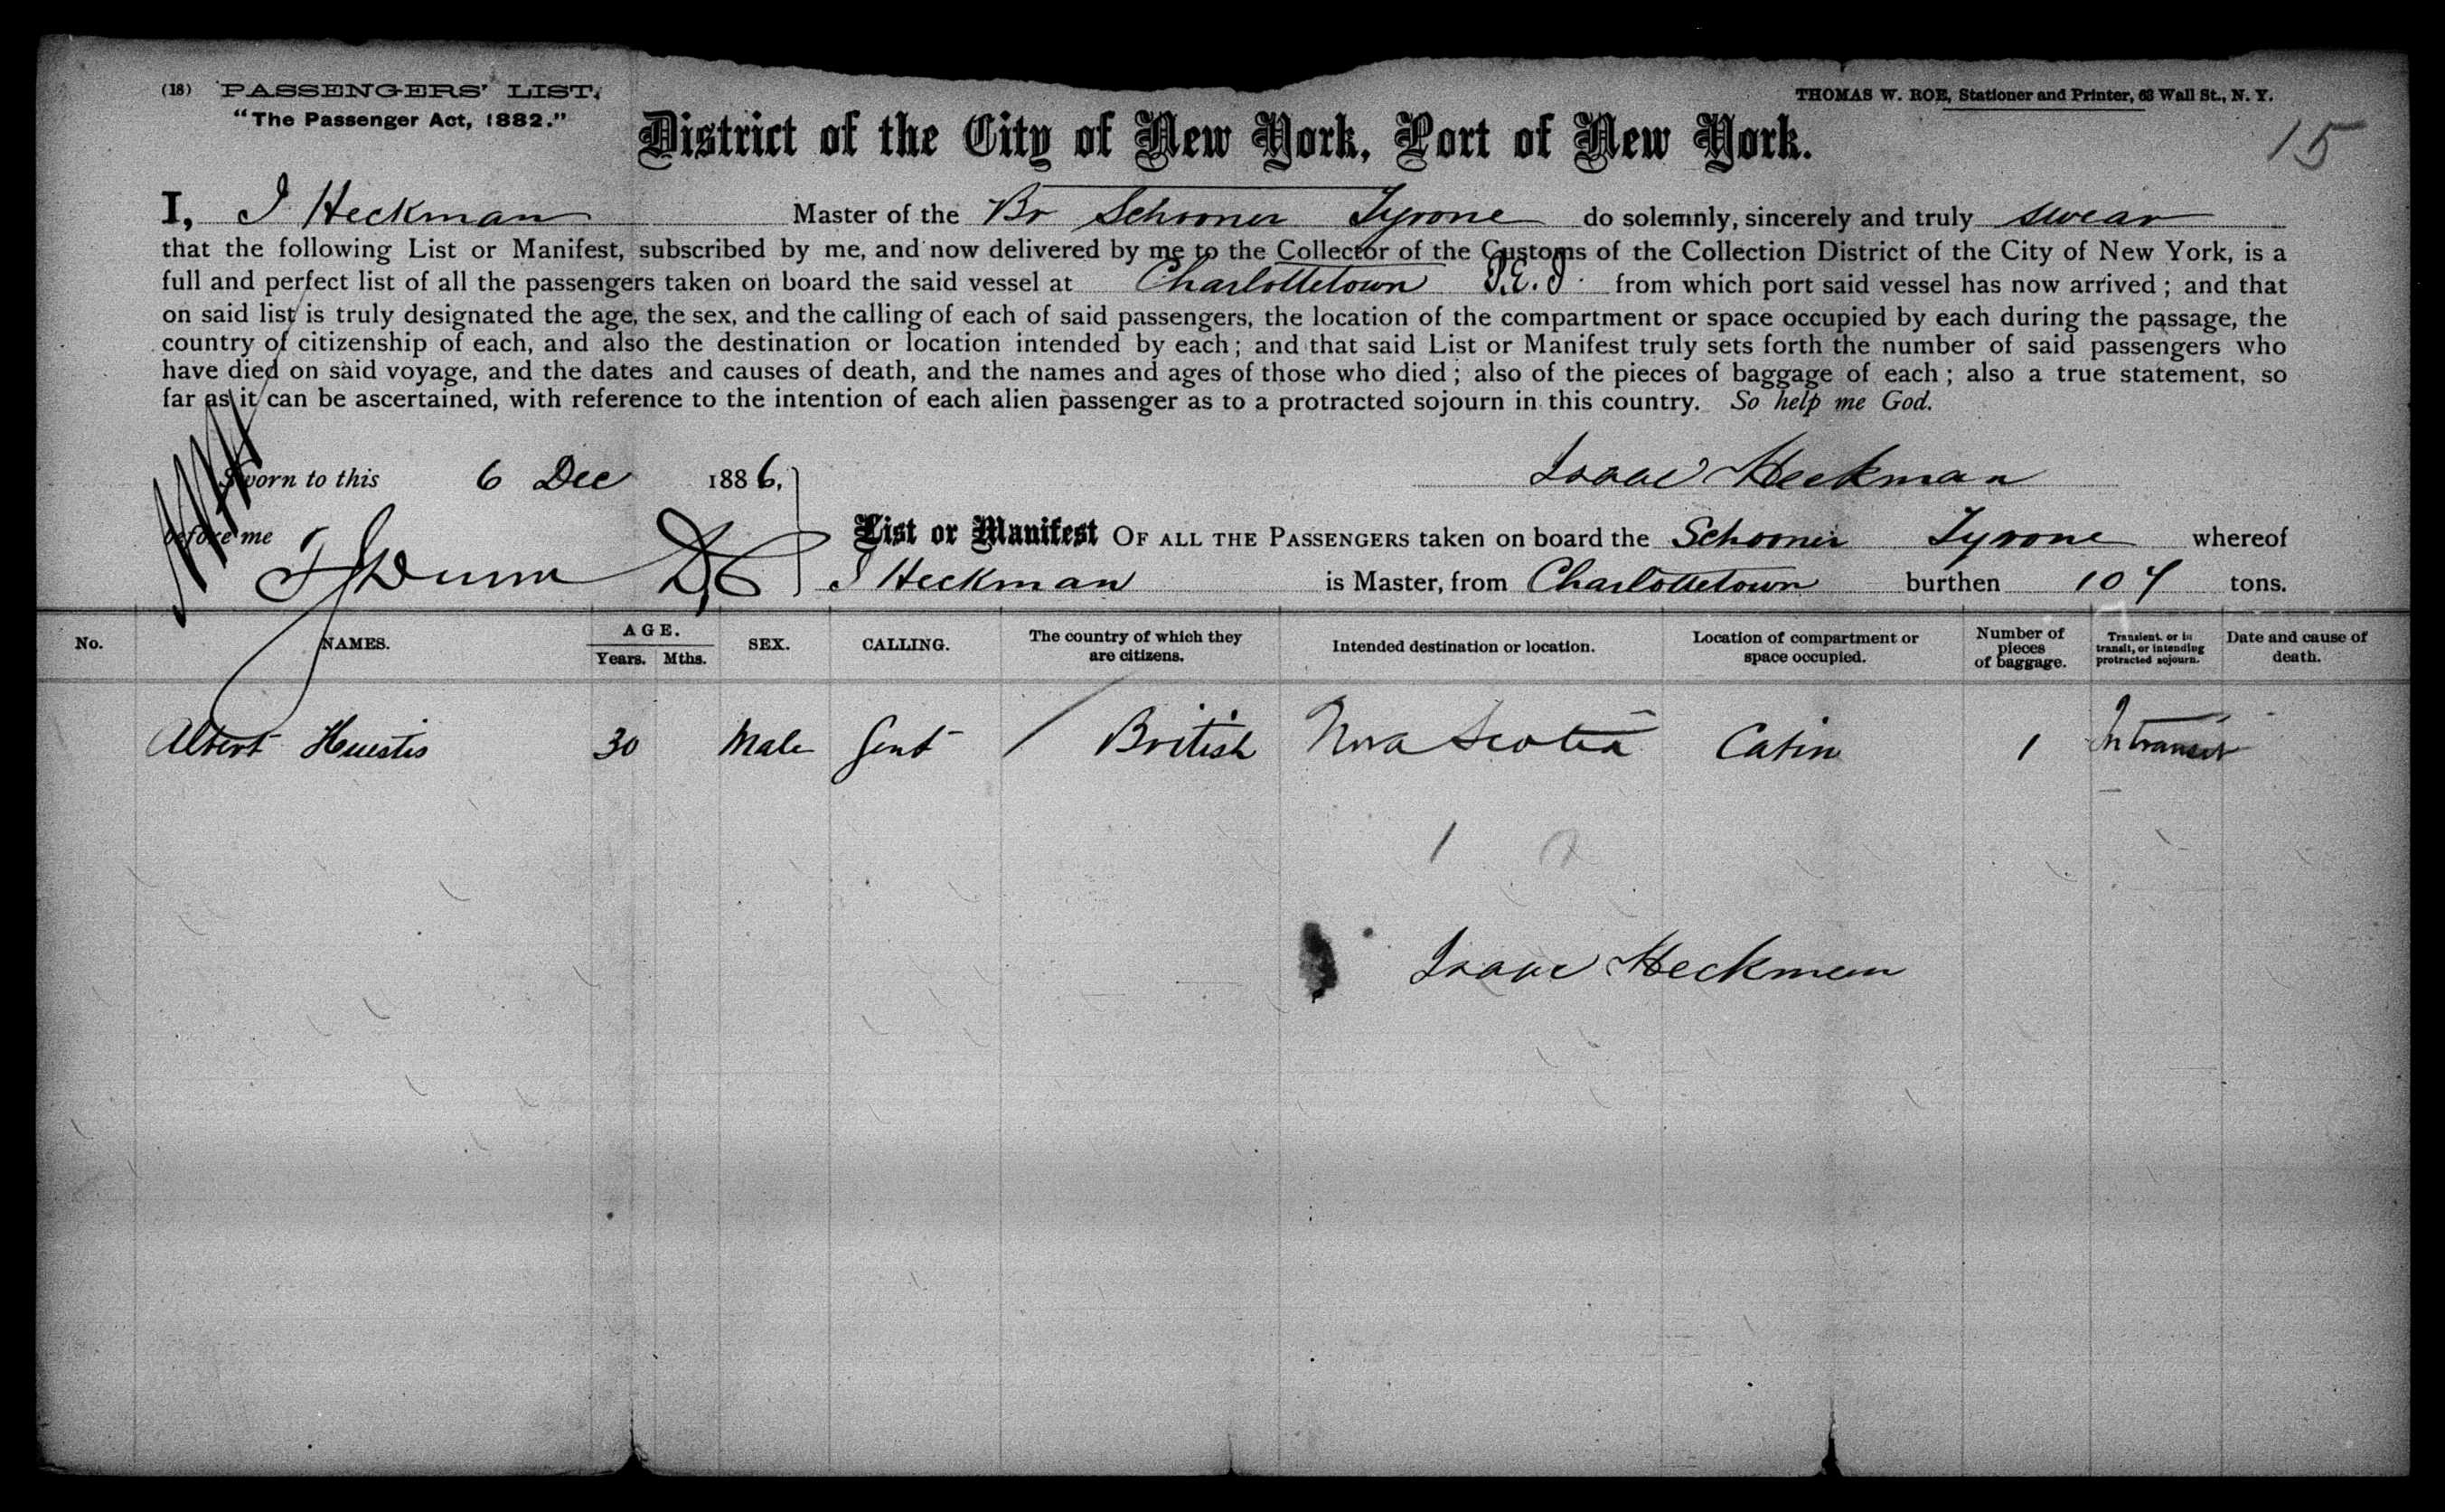 (18) PASSENGERS' LIST.
"The Passenger Act, 1882."
THOMAS W. ROE, Stationer and Printer, 63 Wall St., N. Y.
15
District of the City of New York, Port of New York.
I, I Heckman Master of the Br Schooner Tyrone do solemnly, sincerely and truly swear
that the following List or Manifest, subscribed by me, and now delivered by me to the Collector of the Customs of the Collection District of the City of New York, is a
full and perfect list of all the passengers taken on board the said vessel at Charlottetown P.E.I. from which port said vessel has now arrived; and that
on said list is truly designated the age, the sex, and the calling of each of said passengers, the location of the compartment or space occupied by each during the passage, the
country of citizenship of each, and also the destination or location intended by each; and that said List or Manifest truly sets forth the number of said passengers who
have died on said voyage, and the dates and causes of death, and the names and ages of those who died; also of the pieces of baggage of each; also a true statement, so
far as it can be ascertained, with reference to the intention of each alien passenger as to a protracted sojourn in this country. So help me God.
Sworn to this 6 Dec 1886,
Isaac Heckman
before me Dunn D.C
List or Manifest OF ALL THE PASSENGERS taken on board the Schooner Tyrone whereof
I Heckman is Master, from Charlottetown burthen 107 tons.
No. NAMES. AGE. Years. Mths. SEX. CALLING. The country of which they are citizens. Intended destination or location. Location of compartment or space occupied. Number of pieces of baggage. Transient, or in transit, or intending protracted sojourn. Date and cause of death.
Albert Huestis 30 Male Gent / British Nova Scotia Cabin 1 In transit
1
Isaac Heckman